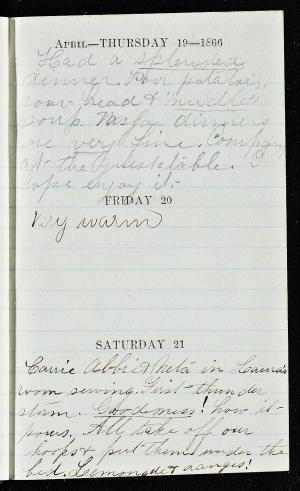 APRIL—THURSDAY 19—1866
Had a splended
dinner. Poor potatoes,
sour bread & "nudle"
soup. Vassar dinners
are very fine. Company
at the guest-table. I
hope enjoy it.
FRIDAY 20
Very warm
SATURDAY 21
Carrie Abbie & Meta in Laura's
room sewing. First thunder
storm. Goodness! how it
pours. All take off our
hoops & put them under the
bed. Lemonade & oranges!